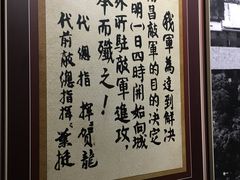 我軍為達到解決
南昌敵軍的目的，決定
明(一)日四時開始向城
外所駐敵軍進攻，
本而殲之！
代總指揮賀龍
代前敵總指揮葉挺